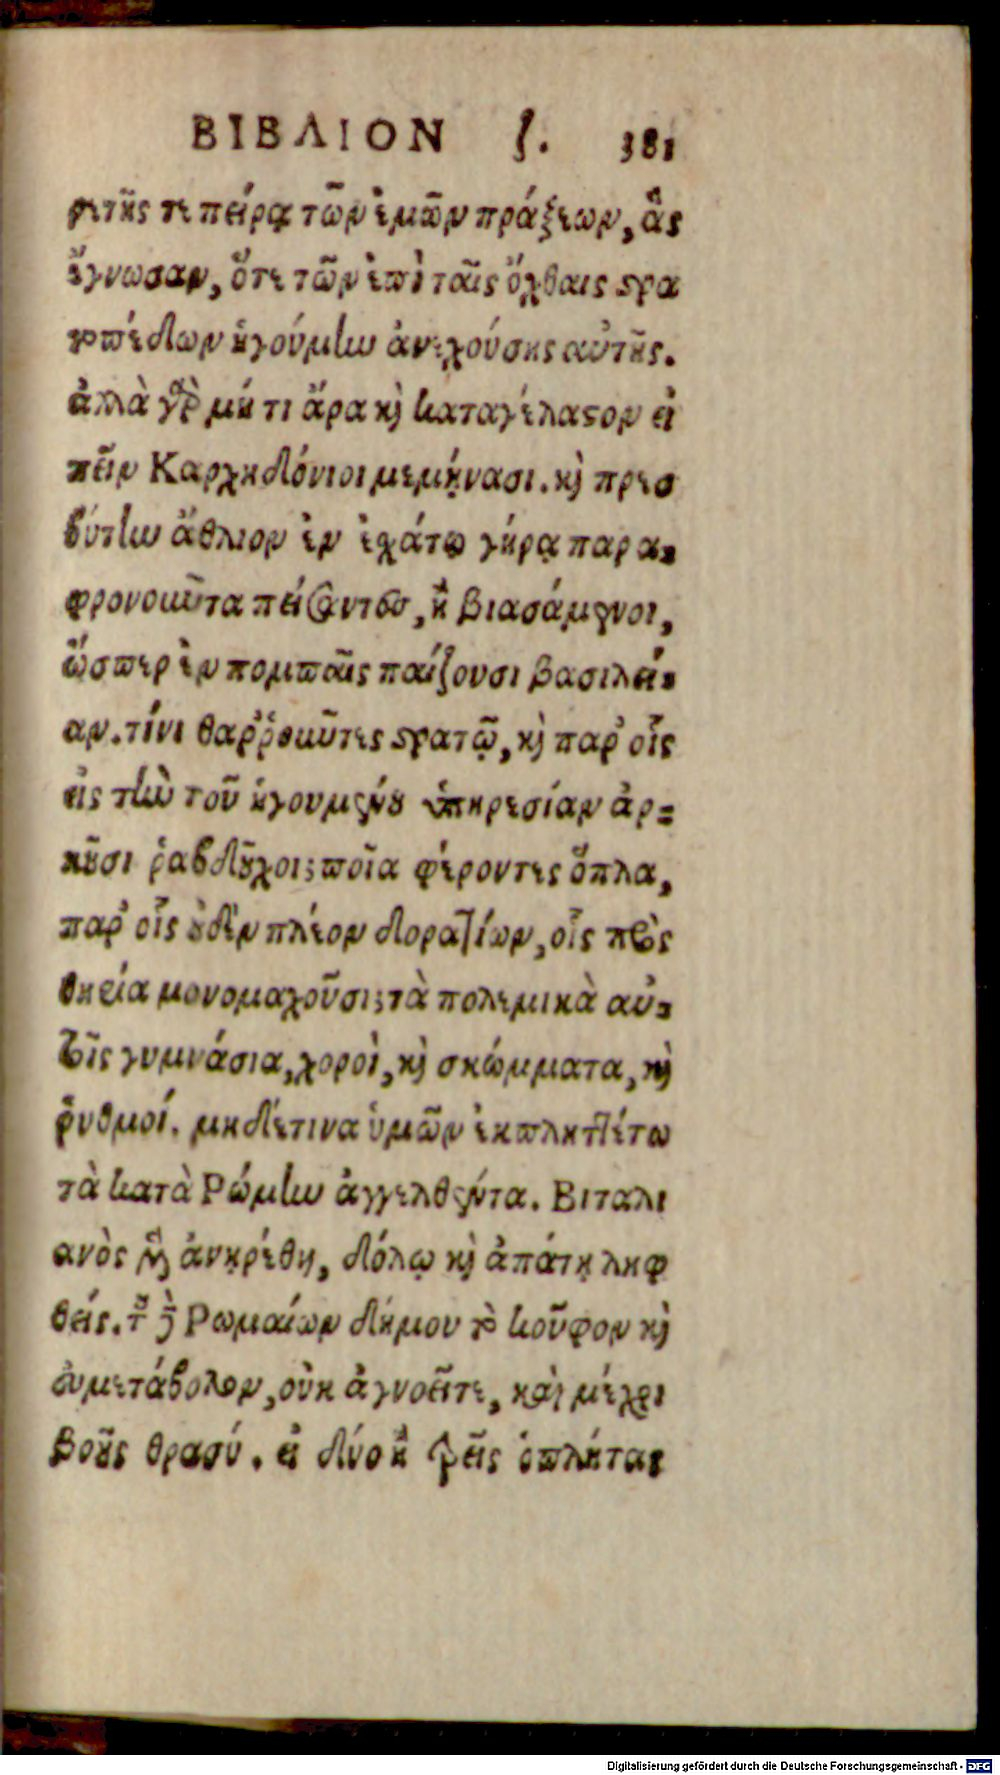 ΒΙΒΛΙΟΝ ζ. 381
ρετῆς τε πείρᾳ τῶν ἐμῶν πράξεων, ἃς
ἔγνωσαν, ὅτε τῶν ἐπὶ ταῖς ὄχθαις στρα
τοπέδων ἡγούμην ἀνεχούσης αὐτῆς.
ἀλλὰ γὰρ μή τι ἄρα καὶ καταγέλαστον εἰ
πεῖν Καρχηδόνιοι μεμήνασι. καὶ πρεσ
βύτην ἄθλιον ἐν ἐσχάτῳ γήρᾳ παρα-
φρονοῦντα πείσαντες, ἢ βιασάμενοι,
ὥσπερ ἐν πομπαῖς παίζουσι βασιλεί-
αν. τίνι θαῤῥοῦντες στρατῷ, καὶ παρ' οἷς
εἰς τὴν τοῦ ἡγουμένου ὑπηρεσίαν ἀρ-
κοῦσι ῥαβδοῦχοι; ποῖα φέροντες ὅπλα,
παρ' οἷς οὐδὲν πλέον δορατίων, οἷς πρὸς
θηρία μονομαχοῦσι; τὰ πολεμικὰ αὐ-
τοῖς γυμνάσια, χοροὶ, καὶ σκώμματα, καὶ
ῥυθμοί. μηδέ τινα ὑμῶν ἐκπληττέτω
τὰ κατὰ Ρώμην ἀγγελθέντα. Βιταλι
ανὸς μὲν ἀνῃρέθη, δόλῳ καὶ ἀπάτῃ ληφ
θείς. τοῦ δὲ Ρωμαίων δήμου τὸ κοῦφον καὶ
εὐμετάβολον, οὐκ ἀγνοεῖτε, καὶ μέχρι
βοῆς θρασύ. εἰ δύο ἢ τρεῖς ὁπλήτας
Digitalisierung gefördert durch die Deutsche Forschungsgemeinschaft - DFG